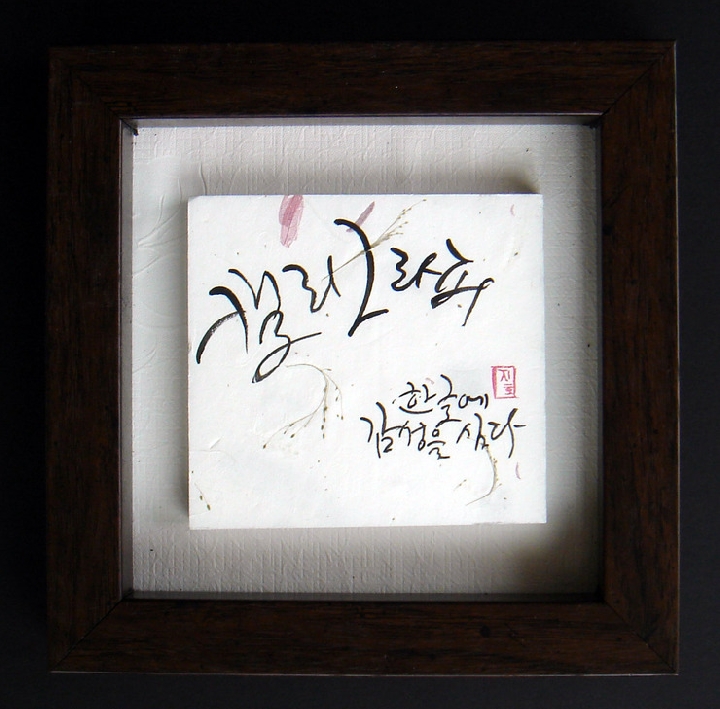 캘리그라피
한글에
감성을 심다